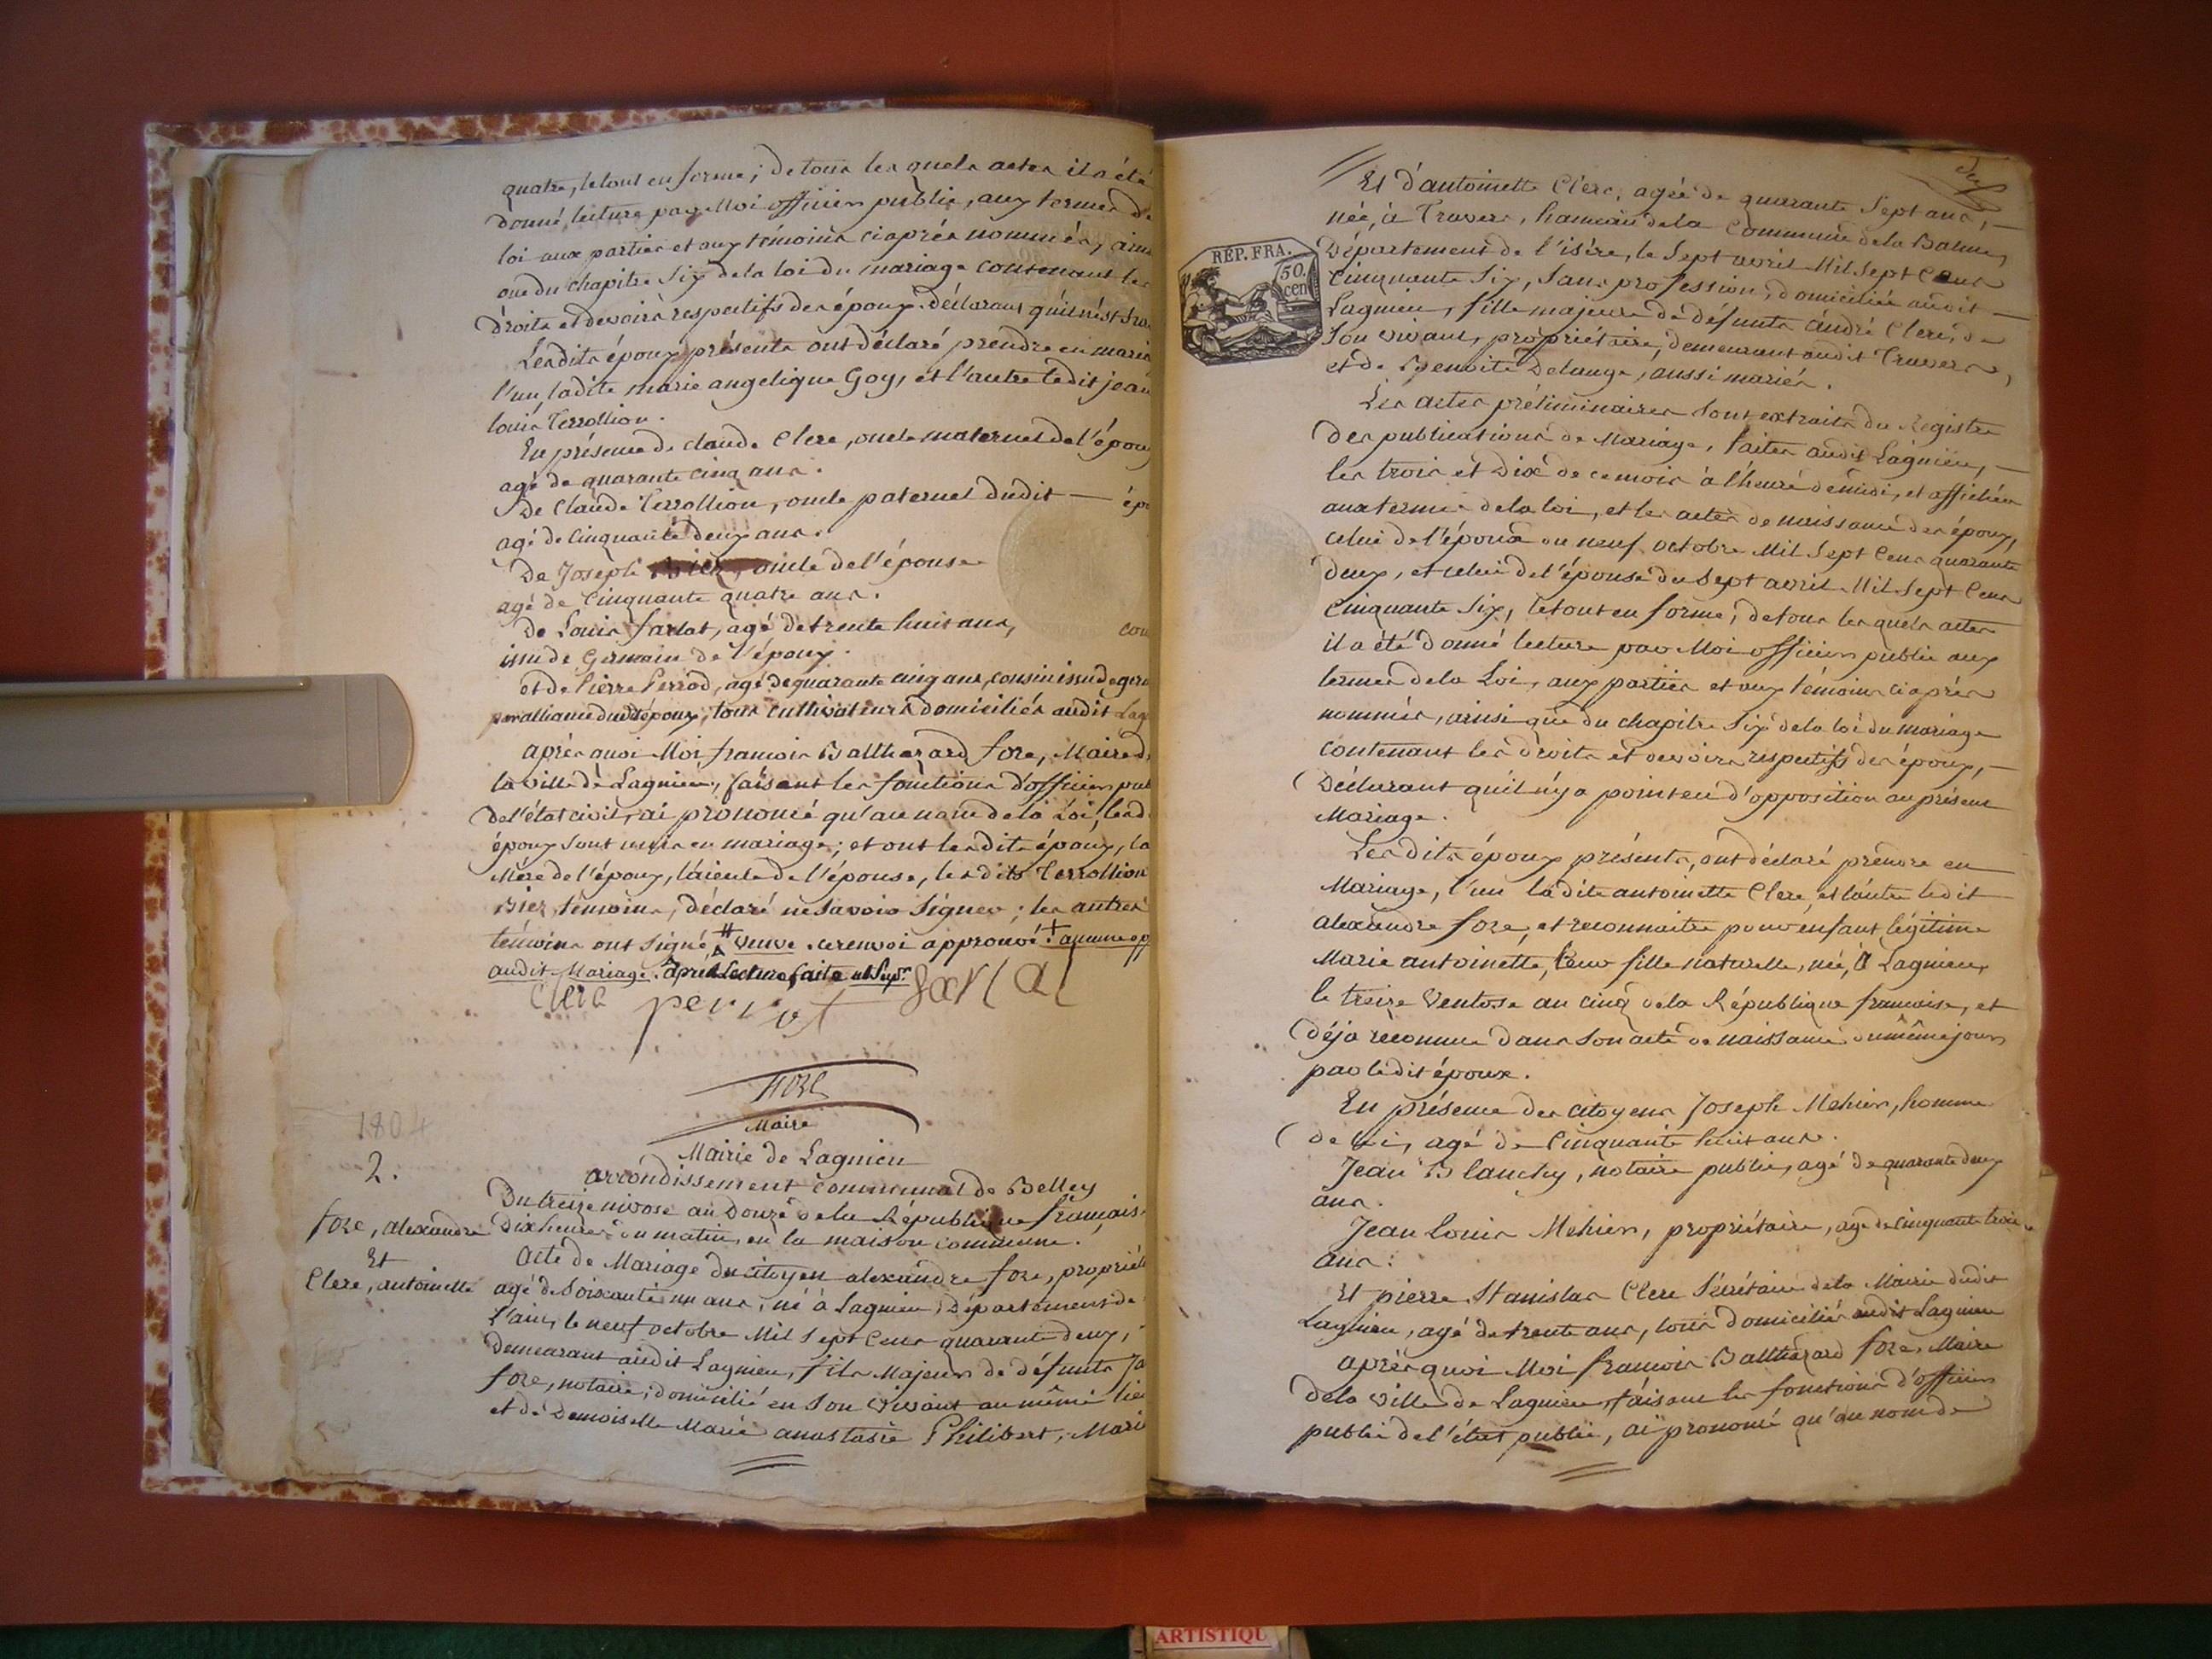 quatre, le tout en forme; de tous les quels actes il a été
donné lecture par Moi officier public, aux termes de
loi aux parties et aux témoins ci après nommés, ainsi
que du chapitre Six de la loi du mariage contenant les
droits et devoirs respectifs des époux. déclarant qu'il n'est
Lesdits époux présents ont déclaré prendre en maria
l'un, ladite marie angelique Goy, et l'autre ledit jean
louis Terrollion.
En présence de claude Clerc, oncle maternel de l'époux
agé de quarante cinq ans.
De Claude Terrollion, oncle paternel dudit — épo
agé de Cinquante deux ans.
De Joseph Bier, oncle de l'épouse
agé de Cinquante quatre ans.
de Louis farlat, agé de trente huit ans, cou
issu de Germain de l'époux.
et de Pierre Perrod, agé de quarante cinq ans, cousin issu de germ
par alliance dudit époux, tous cultivateurs domiciliés audit Lag
après quoi Moi françois Balthazard fore, Maire d
la ville de Lagnieu, faisant les fonctions d'officier pub
de l'état civil, ai prononcé qu'au nom de la Loi, lesd
époux sont unis en mariage; et ont lesdits époux, la
Mère de l'époux, l'aieule de l'épouse, lesdits Terrollion
Bier, témoins, déclaré ne savoir signer; les autres
témoins ont signé # veuve. ce renvoi approuvé + aucune opp
audit Mariage. après lecture faite
Clerc perrod farlat
fore
Maire
1804
2.
Mairie de Lagnieu
arrondissement communal de Belley
Du treize nivose an Douze de la République française
fore, alexandre
Et
Clerc, antoinette
Dix heures du matin, en la maison commune.
Acte de Mariage du citoyen alexandre fore, proprieté
agé de Soixante un ans, né à Lagnieu, Département de
L'ain, le neuf octobre Mil Sept Cens quarante deux,
Demeurant audit Lagnieu, fils Majeur de défunts Ja
fore, notaire, domicilié en Son vivant au même lieu
et de Demoiselle Marie anastasie Philibert, Marié
Et d'antoinette Clerc, agée de quarante Sept ans, —
née, à Travers, hameau de la Commune de la Balme,
Département de l'isère, le Sept avril Mil Sept Cens
RÉP. FRA.
50. cen
Cinquante Six, Sans profession, domiciliée audit —
Lagnieu, fille majeure de défunts andré Clerc, de
Son vivant, propriétaire, demeurant audit Travers,
et de Benoite Delange, aussi mariés.
Les actes préliminaires sont extraits du Registre
Des publications de Mariage, faites audit Lagnieu, —
les trois et Dix de ce mois à l'heure de midi, et affichées
aux termes de la loi, et les actes de naissance des époux,
celui de l'époux du neuf octobre Mil Sept Cens quarante
deux, et celui de l'épouse du Sept avril Mil Sept Cens
Cinquante Six, le tout en forme; de tous les quels actes
il a été donné lecture par Moi officier public aux
termes de la Loi, aux parties et aux témoins ci après
nommés, ainsi que du chapitre Six de la loi du mariage
contenant les droits et devoirs respectifs des époux, —
Déclarant qu'il n'y a point eu d'opposition au présent
Mariage.
Lesdits époux présents, ont déclaré prendre en
Mariage, l'un ladite antoinette Clerc, et l'autre ledit
alexandre fore, et reconnaitre pour enfant légitime
Marie antoinette, leur fille naturelle, née, à Lagnieu,
le treize Ventose an cinq de la République française, et
déja reconnue dans son acte de naissance du même jour
par ledit époux.
En présence des citoyens Joseph Mehier, homme
de loi, agé de Cinquante huit ans.
Jean Blanchy, notaire public, agé de quarante deux
ans.
Jean Louis Mehier, propriétaire, agé de cinquante trois
ans:
Et pierre Stanislas Clerc Sécrétaire de la Mairie dudit
Lagnieu, agé de trente ans, tous domiciliés audit Lagnieu
après quoi Moi françois Balthazard fore, Maire
de la ville de Lagnieu, faisant les fonctions d'officier
public de l'état public, ai prononcé qu'au nom de
ARTISTIQU